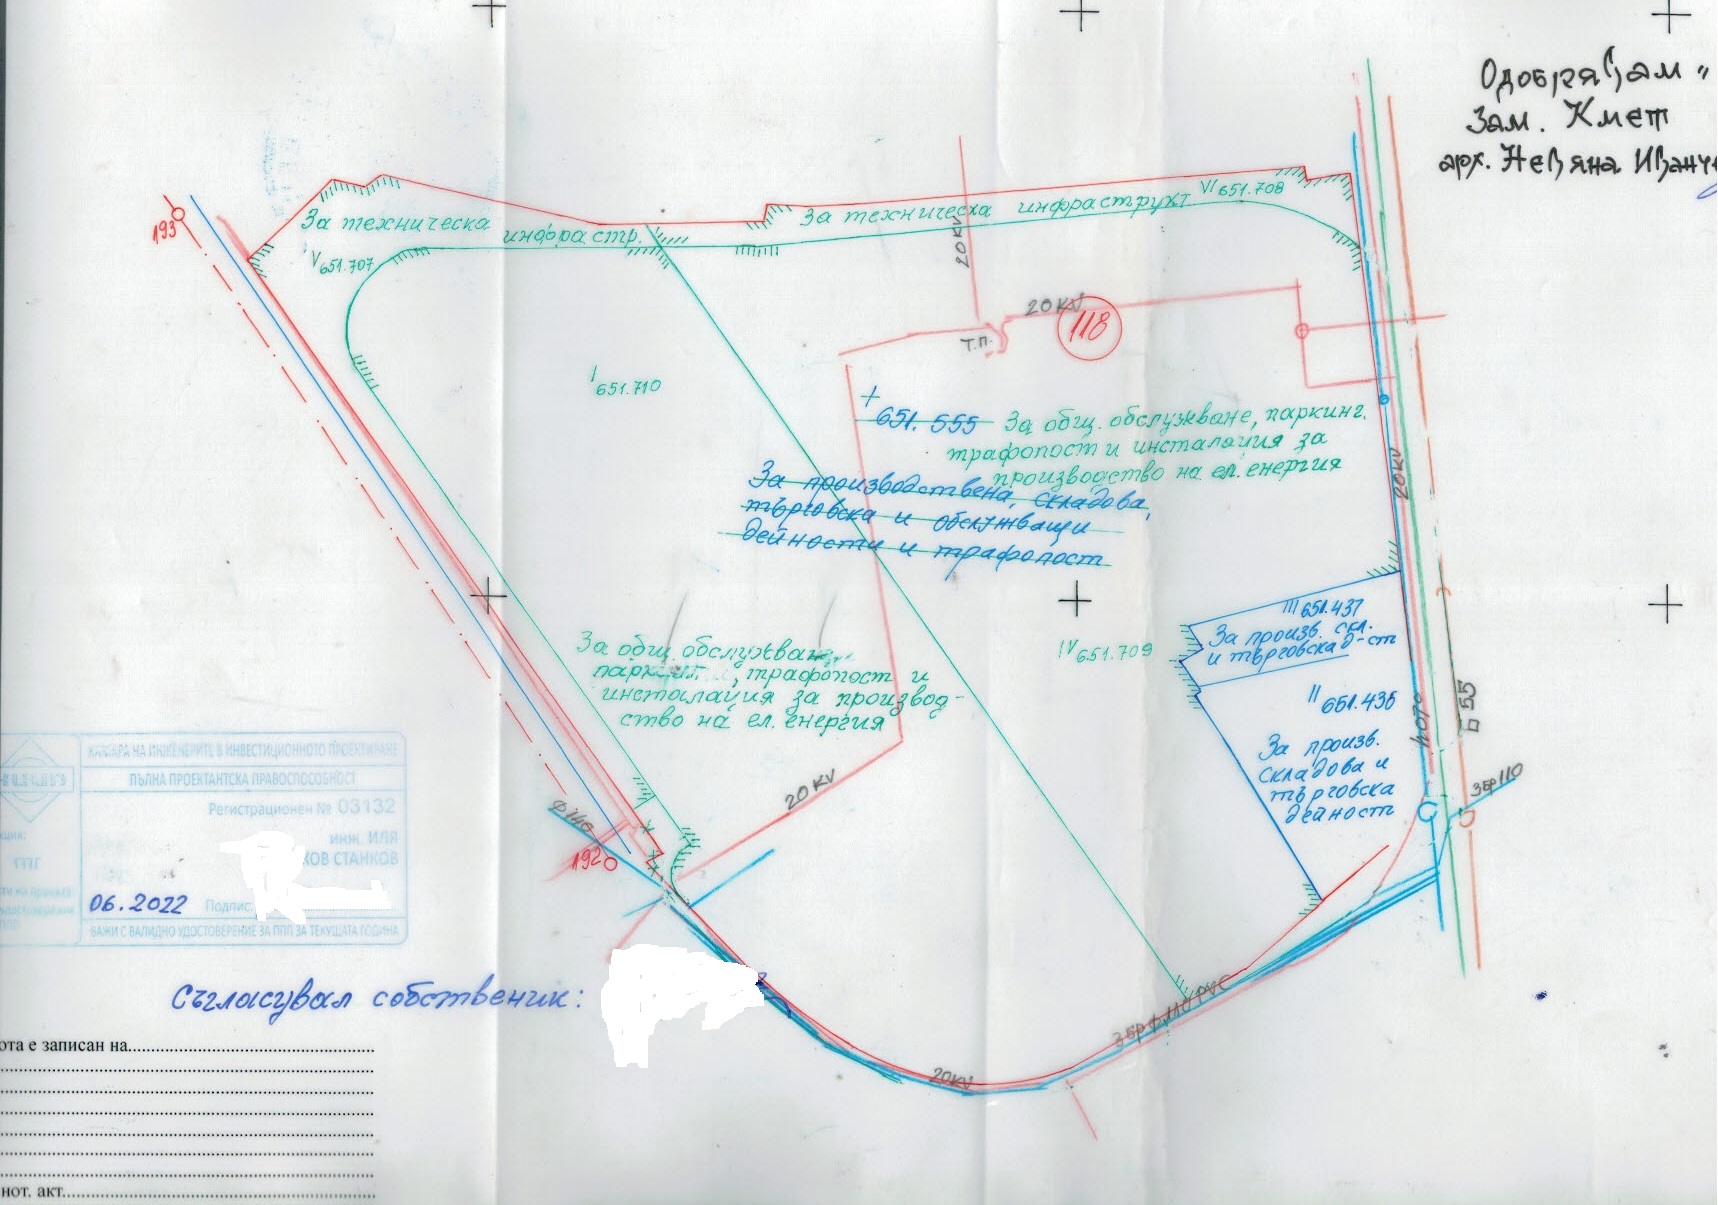 Одобрявам"
Зам. Кмет
арх. Невяна Иванч
193
За техническа
инфрастр.
V 651.707
За техническа инфраструкт
VI 651.708
20KV
20KV
118
Т.П.
I 651.710
651.555
За общ. обслужване, паркинг.
трафопост и инсталация за
производство на ел. енергия
За производствена, складова,
търговска и обслужващи
дейности и трафопост
20KV
III 651.437
За произв. скл.
и търговска д-ст
IV 651.709
II 651.436
За произв.
складова и
търговска
дейност
За общ. обслужван
паркинг, трафопост и
инсталация за производ-
ство на ел. енергия
55
3бр110
20KV
ф140
192
КАМАРА НА ИНЖЕНЕРИТЕ В ИНВЕСТИЦИОННОТО ПРОЕКТИРАНЕ
ПЪЛНА ПРОЕКТАНТСКА ПРАВОСПОСОБНОСТ
Регистрационен № 03132
инж. ИЛЯ
КОВ СТАНКОВ
06.2022 Подпис:
ВАЖИ С ВАЛИДНО УДОСТОВЕРЕНИЕ ЗА ППП ЗА ТЕКУЩАТА ГОДИНА
Съгласувал собственик:
3бр ф110 PVC
20KV
ота е записан на
нот. акт